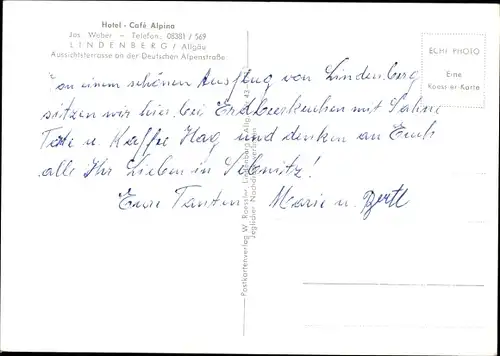 Hotel - Café Alpina
Jos. Weber - Telefon: 08381 / 569
LINDENBERG / Allgäu
Aussichtsterrasse an der Deutschen Alpenstraße
ECHT PHOTO
Eine
Roessler-Karte
an einem schönen Ausflug von Lindenberg
sitzen wir hier bei Erdbeerkuchen mit Sahne
u. Kaffee Hag und denken an Euch
alle Ihr Lieben in Sebnitz!
Eure Tanten Marie u. Bertl
Postkartenverlag W. Roessler, Lindenberg / Allg. 43
Jeglicher Nachdruck verboten